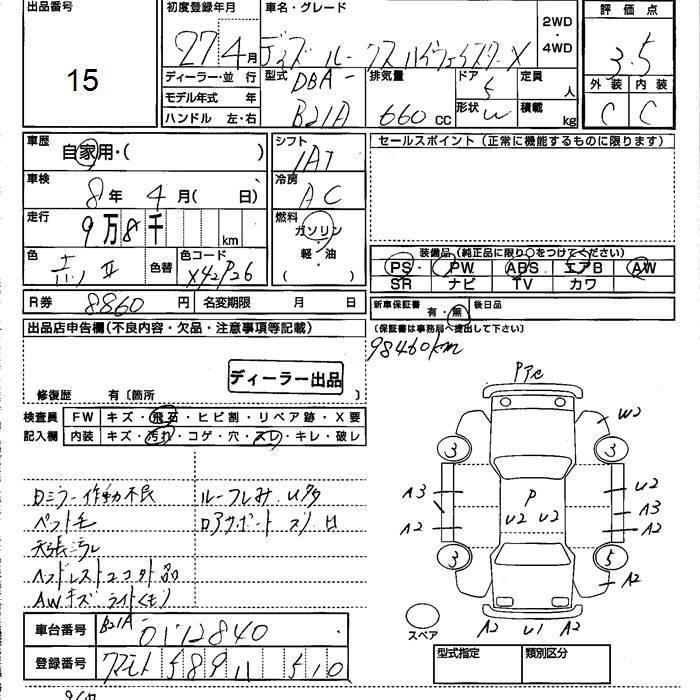 出品番号
15
初度登録年月
27 4月
車名・グレード
デイズ ルークス ハイウェイスターX
2WD・4WD
評価点
3.5
ディーラー・並 行
モデル年式 年
ハンドル 左・右
型式 DBA-
B21A
排気量
660 cc
ドア 5
形状
定員 人
積載 kg
外装 内装
C C
車歴
自家用・( )
車検
8年 4月( 日)
走行
9万8千 km
色
赤/II
色替
色コード
X42P26
シフト
IAT
冷房
AC
燃料
ガソリン・軽・油
セールスポイント(正常に機能するものに限ります)
装備品(純正品に限り○をつけてください)
PS PW ABS エアB AW
SR ナビ TV カワ
R券 8860円 名変期限 月 日
新車保証書 有・無 後日品
(保証書は事務局へ提出して下さい)
98460km
出品店申告欄(不良内容・欠品・注意事項等記載)
ディーラー出品
修復歴 有〔箇所 〕
検査員記入欄
FW キズ・飛石・ヒビ割・リペア跡・X要
内装 キズ・汚れ・コゲ・穴・スレ・キレ・破レ
ロミラー作動不良
ペット毛
天張ニラレ
ヘッドレスト2コ外品
AWキズ ライトくもり
車台番号 B21A-0172840
登録番号 クマモト 589 510
W2
3 3
A3 U2
A3
P
A2 U2 U2 A2
3 5
A2
スペア
A2 U1 A2
型式指定 類別区分